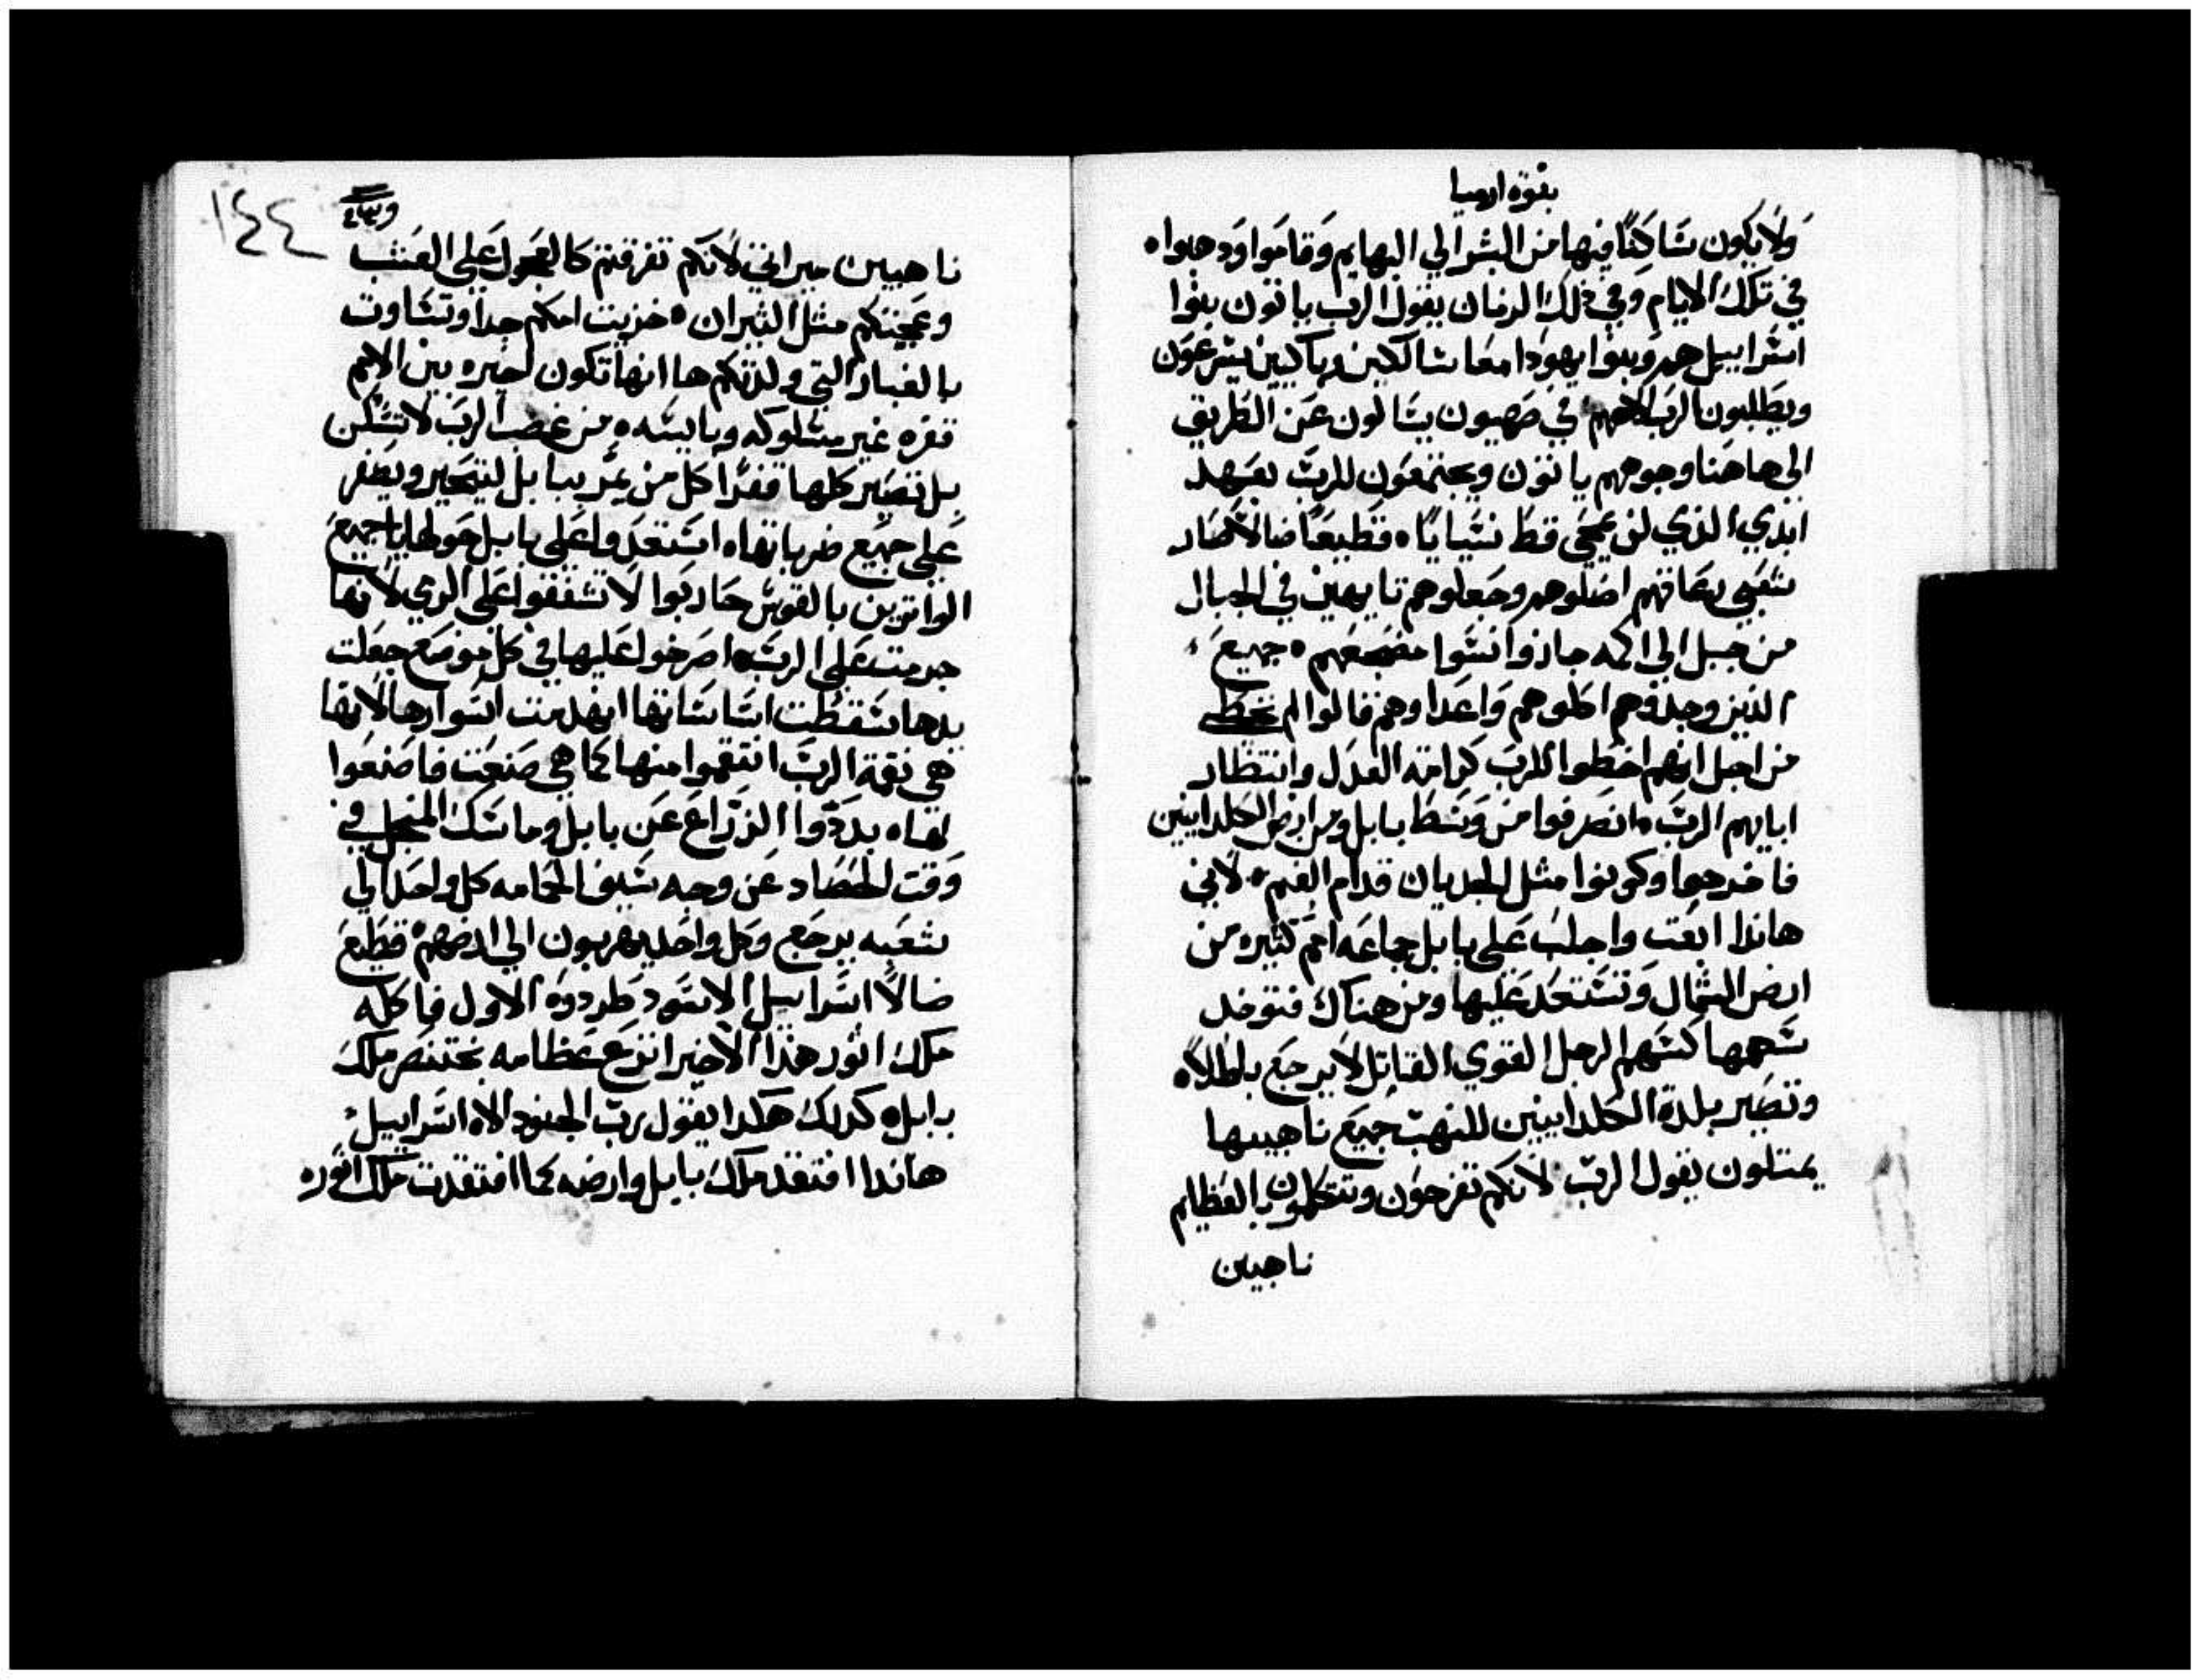 بنوة ارميا
ولايكون ساكنا فيها من البشر الي البهايم وقاموا ودهبوا
في تلك الايام وفي ذلك الزمان يقول الرب ياتون بنوا
اسراييل هم وبنوا يهودا معا سالكين وباكيين يسرعون
ويطلبون الرب الاههم في صهيون يسالون عن الطريق
الي هاهنا وجوههم ياتون ويجتمعون للرب بعهد
ابدي الذي لن يمحي قط نسيانا قطيعا ضالا صار
شعبي رعاتهم اضلوهم وجعلوهم تايهين في الجبال
من جبل الي اكمه جازوا نسوا مضجعهم جميع
الذين وجدوهم اكلوهم واعداوهم قالوا لم نخطي
من اجل انهم اخطوا للرب كرامة العدل وانتظار
ابايهم الرب انصرفوا من وسط بابل ومن ارض الكلدانيين
فاخرجوا وكونوا مثل الجديان قدام الغنم لاني
هاندا ابعت واجلب علي بابل جماعه امم كثيره من
ارض الشمال وتستعد عليها ومن هناك فتوخد
سهمها كسهم الرجل القوي القاتل لا يرجع باطلا
وتصير بلدة الكلدانيين للنهب جميع ناهبيها
يمتلون يقول الرب لانكم تفرحون وتتكلمون بالعظايم
ناهبين
١٤٤
ناهبين ميراتي لانكم تفرقتم كالعجول علي العشب
وعجيتم مثل الثيران خزيت امكم جدا وتساوت
بالغبار التي ولدتكم ها انها تكون اخيره بين الامم
قفره غير مسلوكه ويابسه من غضب الرب لا تسكن
بل تصير كلها قفرا كل من يمر ببابل ليتحير ويصفر
علي جميع ضرباتها استعدوا علي بابل حولها يا جميع
الواترين بالقوس حاربوا لا تشفقوا علي الرمي لانها
جرمت علي الرب اصرخوا عليها في كل موضع جعلت
يدها سقطت اساساتها انهدمت اسوارها لانها
هي نقمة الرب انتقموا منها كما هي صنعت فاصنعوا
لها بددوا الزراع عن بابل وماسك المنجل في
وقت الحصاد عن وجه سيف الحمامه كل واحد الي
شعبه يرجع وكل واحد يهربون الي ارضهم قطيع
ضالا اسراييل الاسود طردوه الاول فاكله
ملك اثور هذا الاخير انزع عظامه بختنصر ملك
بابل كدلك هكدا يقول رب الجنود الاه اسراييل
هاندا افتقد ملك بابل وارضه كما افتقدت ملك اثور